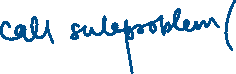 call subproblem(